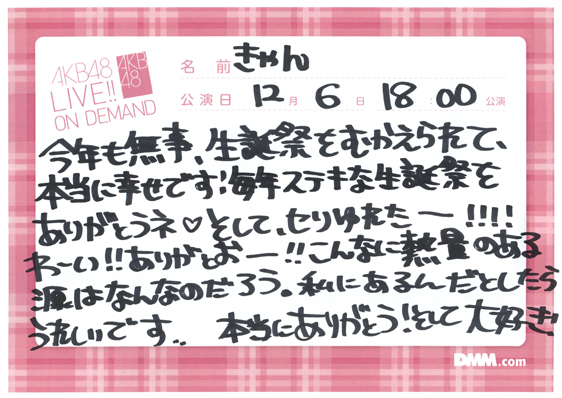 AKB48
LIVE!!
ON DEMAND
AKB
48
名前 きゃん
公演日 12月 6日 18:00 公演
今年も無事、生誕祭をむかえられて、
本当に幸せです!毎年ステキな生誕祭を
ありがとうネ♡そして、せりゆれたー!!!!
わ〜い!!ありがとおー!!こんなに熱量のある
源はなんなのだろう。私にあるんだとしたら
うれしいです.. 本当にありがとう!そして大好き
DMM.com